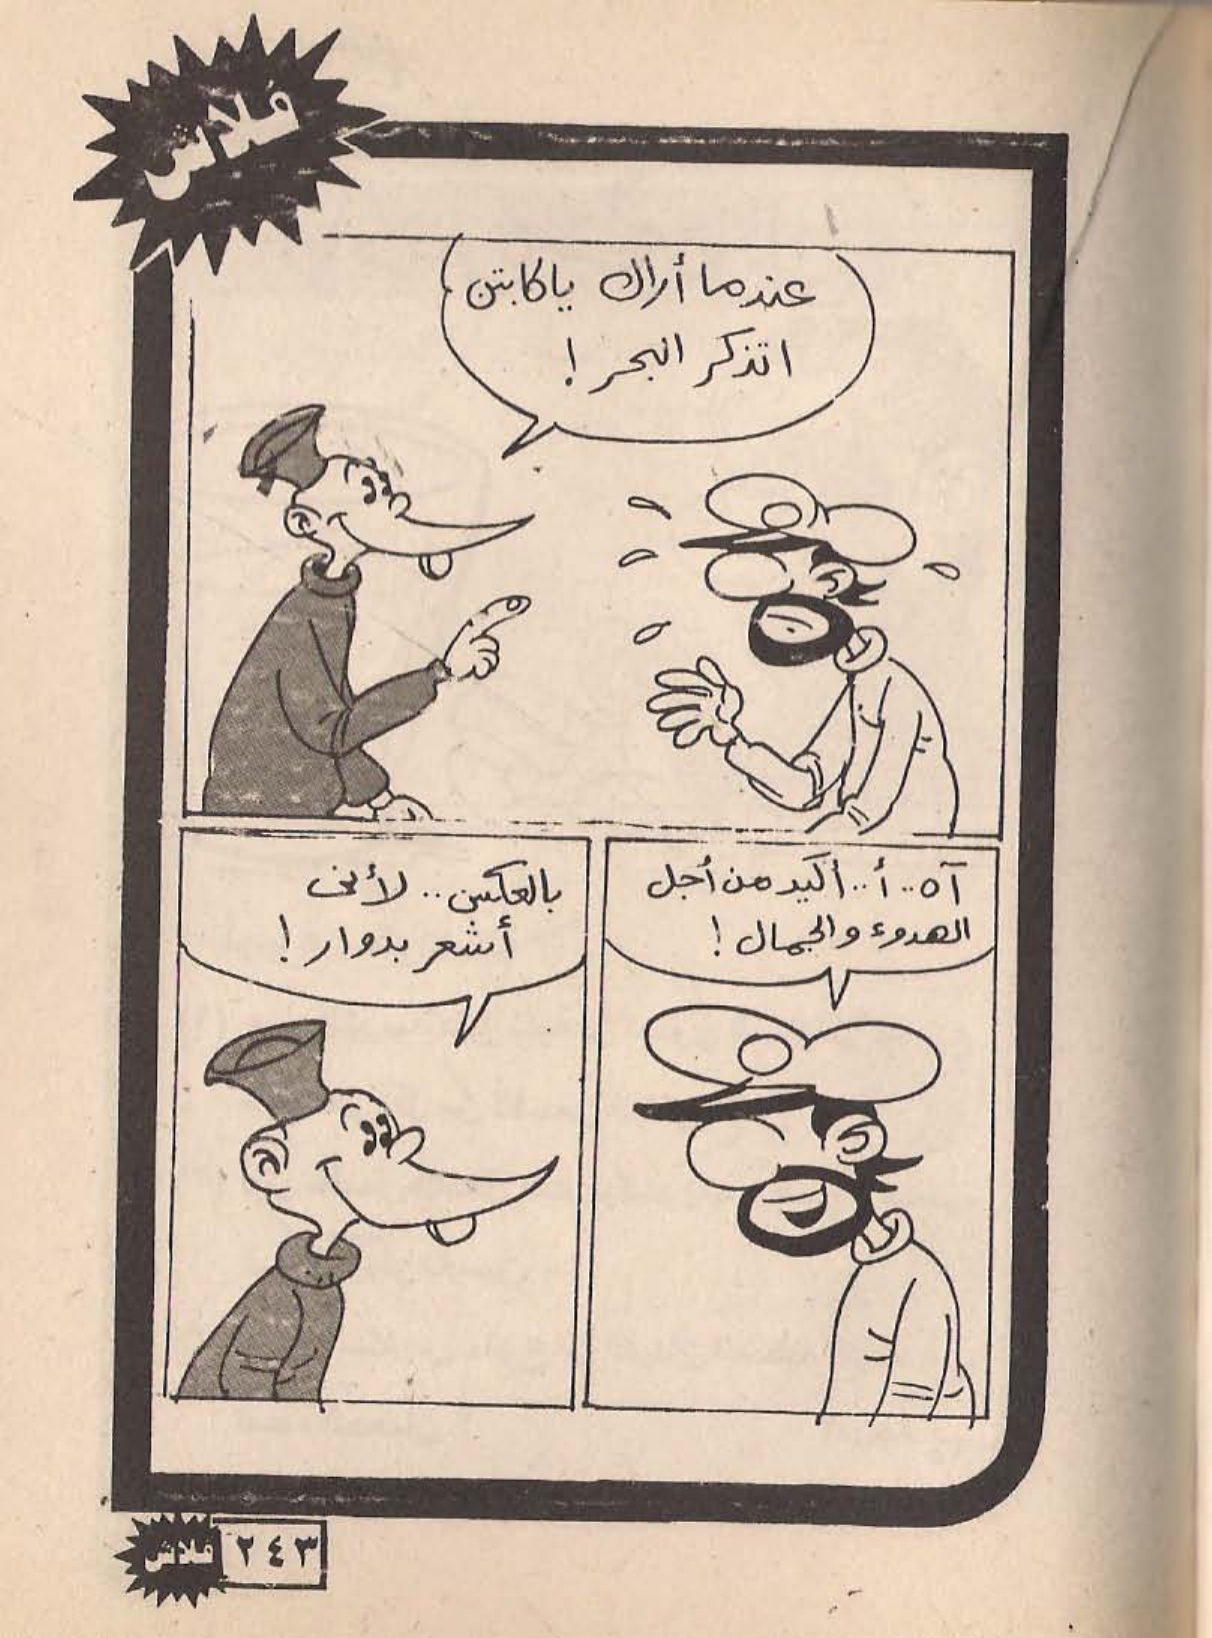 فلاش
عندما أراك ياكابتن
اتذكر البحر !
آه.. أ.. أكيد من أجل
الهدوء والجمال !
بالعكس.. لأنى
أشعر بدوار !
فلاش
٢٤٣